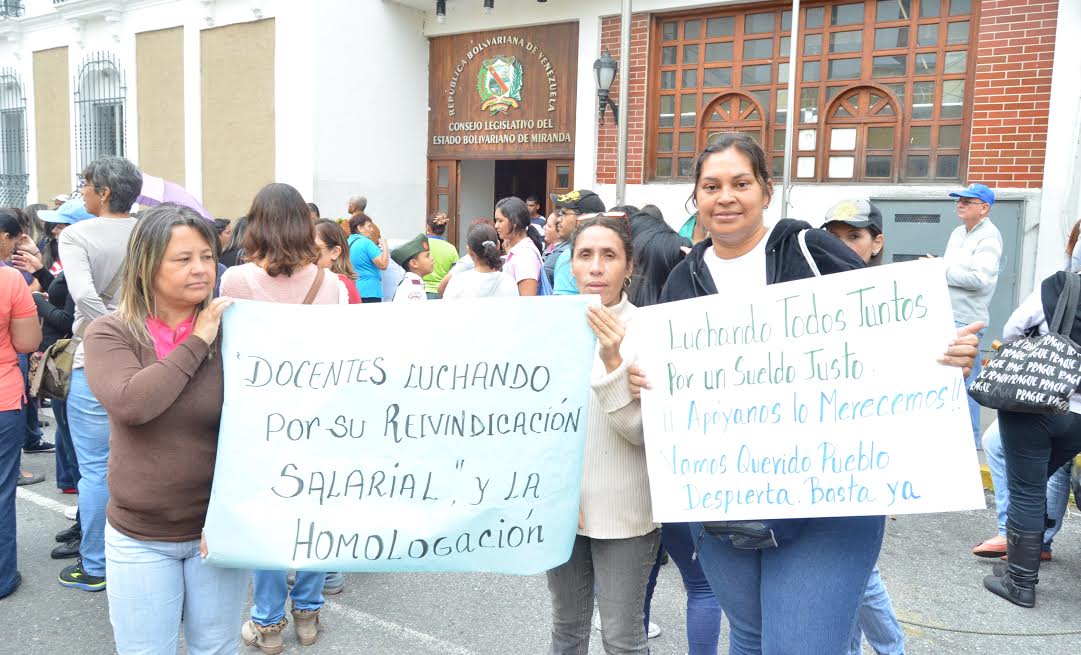 REPÚBLICA BOLIVARIANA DE VENEZUELA
CONSEJO LEGISLATIVO DEL
ESTADO BOLIVARIANO DE MIRANDA
"DOCENTES LUCHANDO
POR SU REIVINDICACIÓN
SALARIAL", Y LA
HOMOLOGACIÓN
Luchando Todos Juntos
Por un Sueldo Justo.
¡¡ Apóyanos lo Merecemos!!
Vamos Querido Pueblo
Despierta. Basta ya
PRAGUE PRAGUE
PRAGUE PRAGUE
PRAGUE PRAGUE